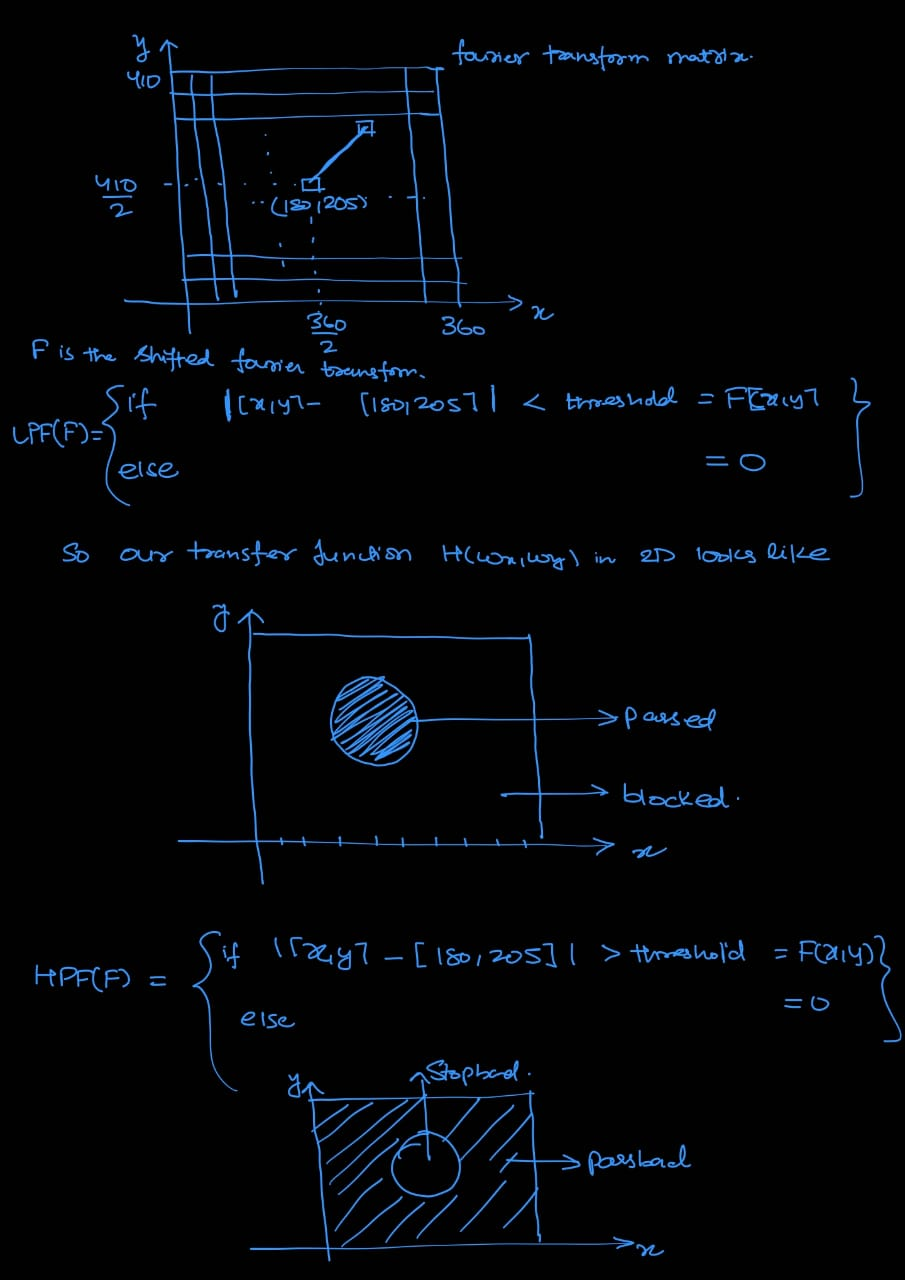 y
410
fourier transform matrix.
410/2
(180,205)
360/2
360
x
F is the shifted fourier transform.
LPF(F)= { if |[x,y] - [180,205]| < threshold = F[x,y] }
else = 0
So our transfer function H(ωx,ωy) in 2D looks like
y
passed
blocked.
x
HPF(F) = { if |[x,y] - [180,205]| > threshold = F(x,y) }
else = 0
y
Stopbad.
passbad
x